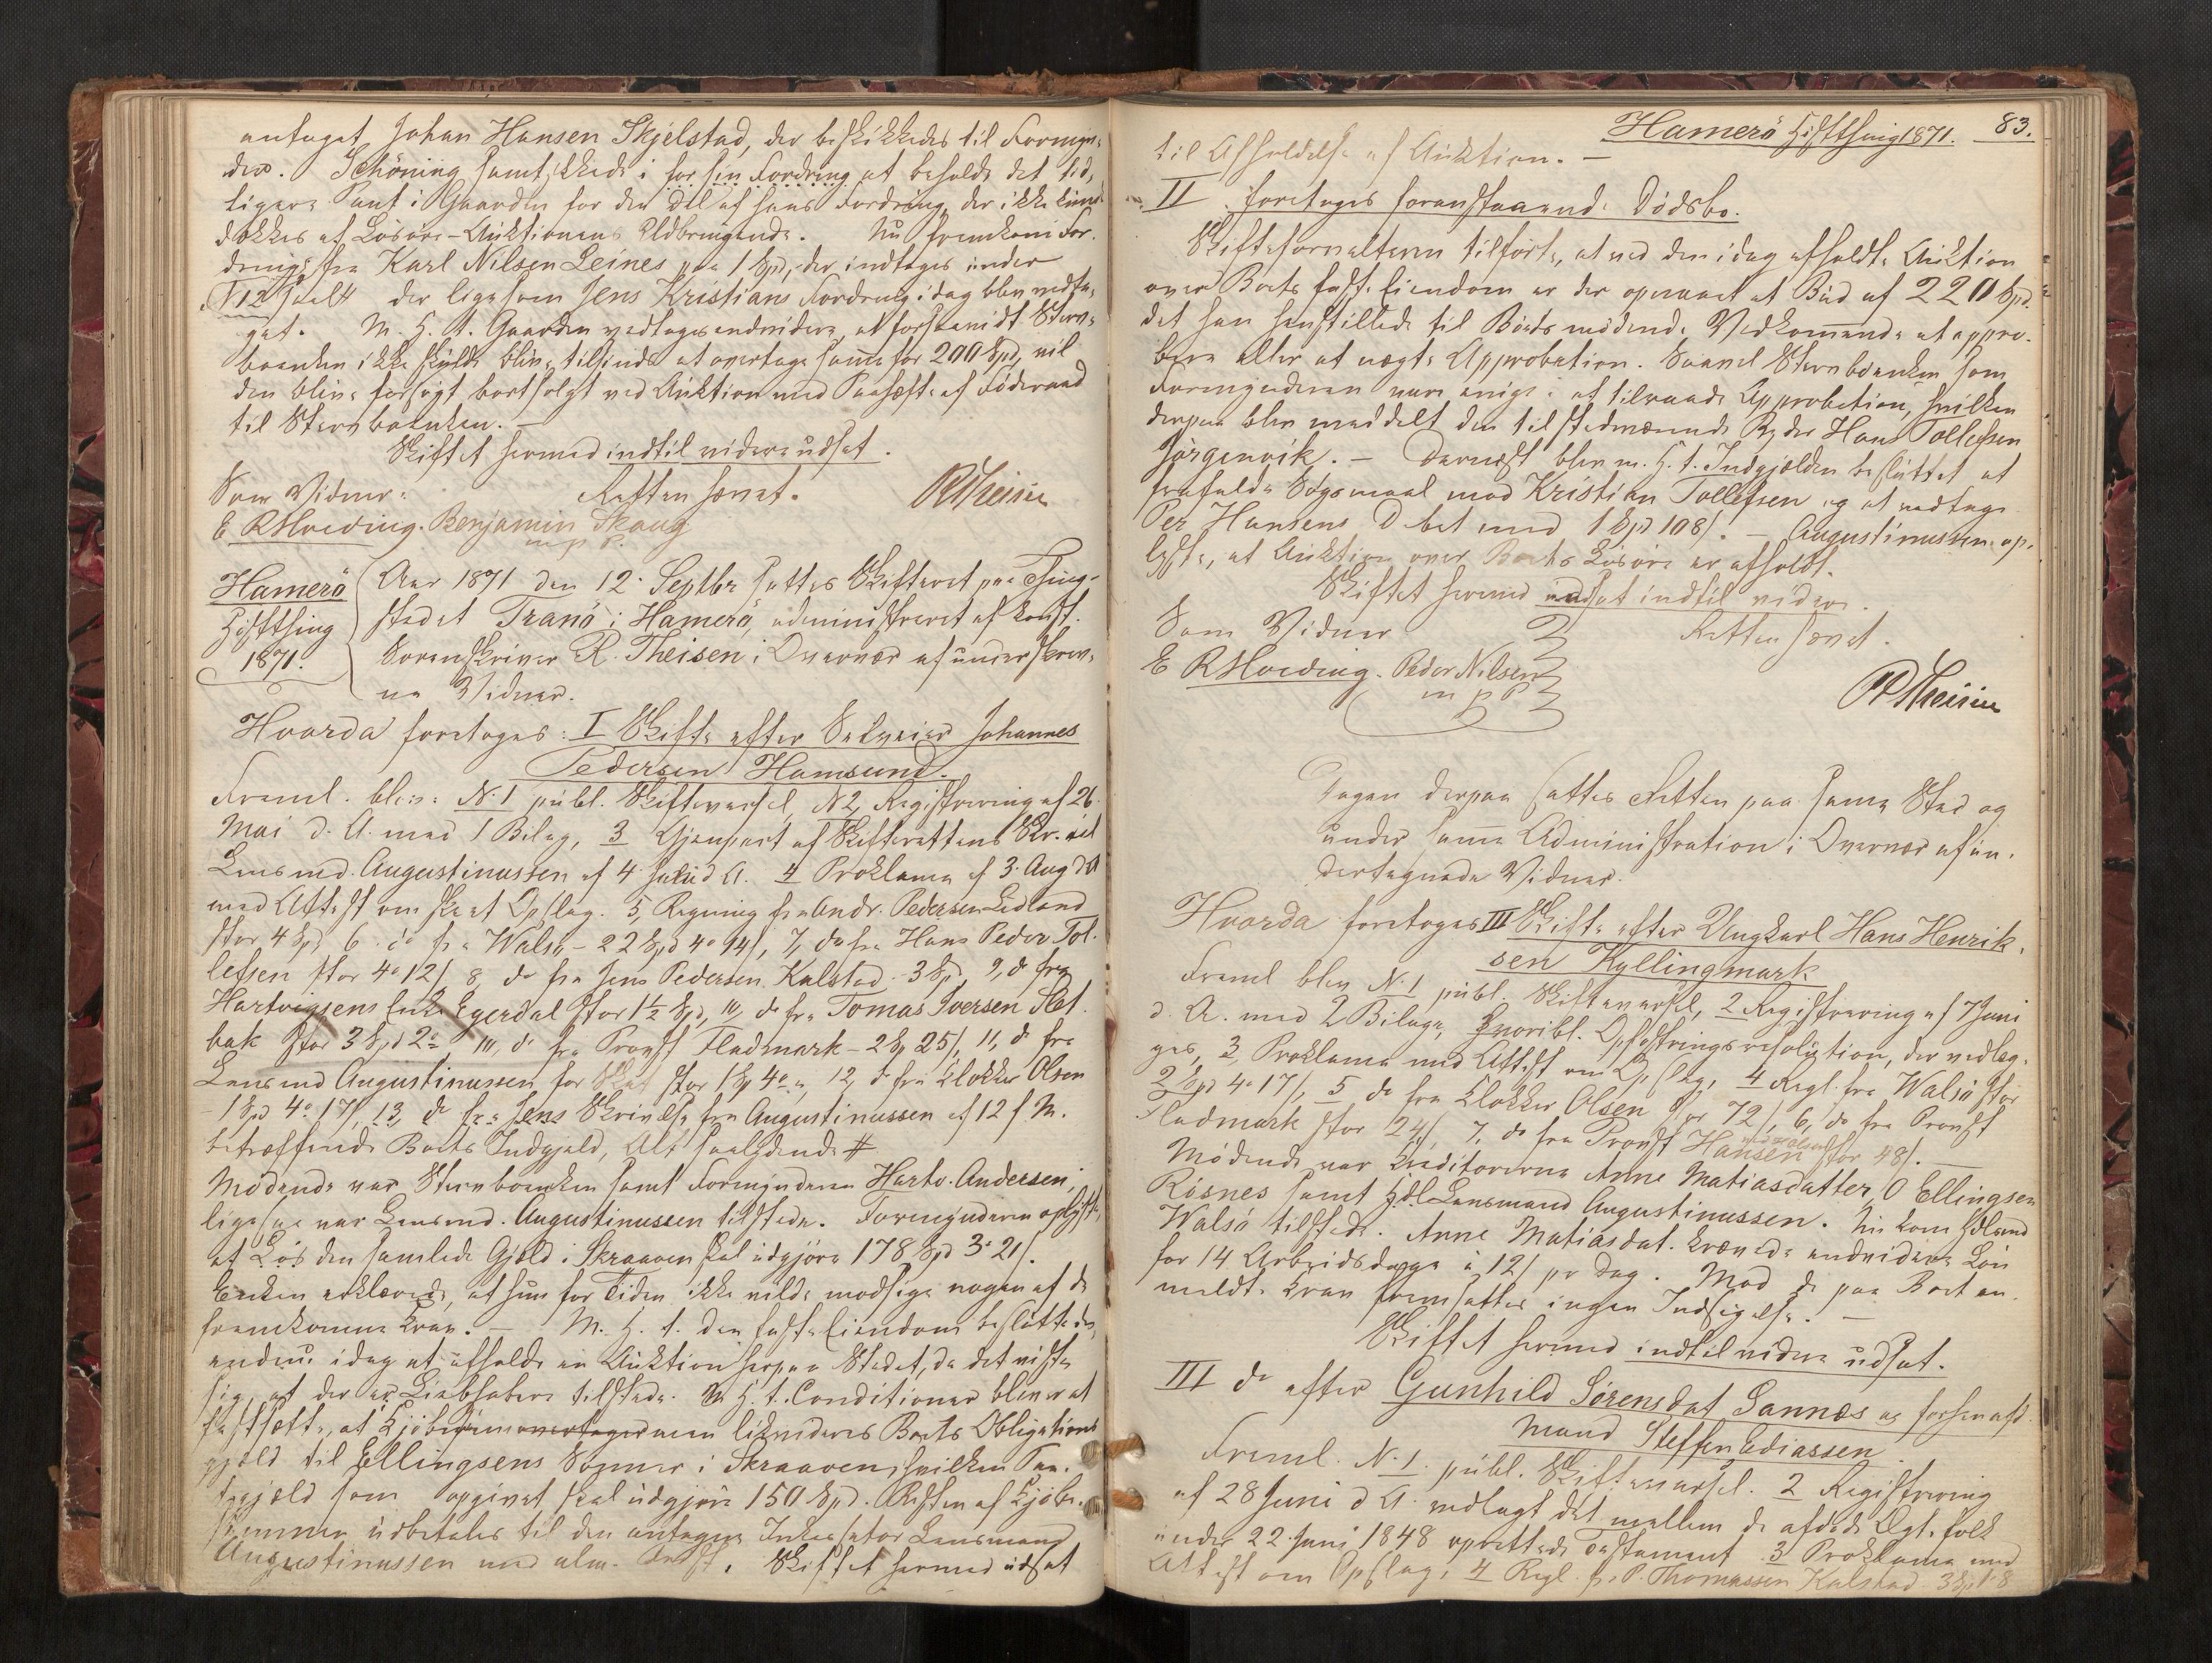 antaget Johan Hansen Skjelstad, der beskikkedes til Formyn-
der. Schöning samtykkede i for sin Fordring at beholde det tid-
ligere Pant i Gaarden for den Del af hans Fordring, der ikke kunde
dækkes af Lösöre-Auktionens Udbringende. Nu fremkom For-
dring fra Karl Nilsen Leines paa 1 Spd, der indtages under
N 12 der ligesom Jens Kristians Fordring idag blev vedta-
get. M. H. t. Gaarden vedtoges endvidere, at forsaavidt Sterv-
boenken ikke skulde blive tilsinds at overtage samme for 200 Spd, vil
den blive forsögt bortsolgt ved Auktion med Paahefte af Föderaad
til Stervboenken. –
Skiftet hermed indtil videre udsat.
Som Vidner: Retten hævet. RTheisen
E RHveding. Benjamin Skaug
m p P.
Hamerö
Höstthing
1871.
Aar 1871 den 12. Septbr sattes Skifteret paa Thing-
stedet Tranö i Hamerö, administreret af konst.
Sorenskriver R. Theisen i Overvær af underskrev-
ne Vidner.
Hvorda foretoges: I Skifte efter Selveier Johannes
Pedersen Hamsund.
Freml. blev: N. 1 publ. Skiftevarsel, N 2, Registrering af 26.
Mai d. A. med 1 Bilag, 3 Gjenpart af Skifterettens Skr. til
Lensmd. Augustinussen af 4 Juli d A. 4 Proklama af 3. Aug d A
med Attest om skeet Opslag. 5, Regning fra Andr. Pedersen
stor 4 Spd 6. do fra Walsö – 22 Spd 4 o 14 /, 7, do fra Hans Peder Tol-
lefsen stor 4 o 12 / 8, do fra Jens Pedersen Kalstad 3 Spd, 9, do fra
Hartvigsens Enke Egerdal stor 1½ Spd, 10, do fra Tomas Iversen
bak stor 3 Spd 2 o, 10, do fra Provst Fladmark – 2 Sp 25 /, 11, do fra
Lensmd Augustinussen for Skat stor 1 Sp 4 o, 12, do fra Klokker Olsen
– 1 Spd 4 o 17 /, 13, Skrivelse fra Augustinussen af 12 f. M.
betræffende Boets Indgjæld, Alt saalydende #
Mødende var Stervboenken samt Formynderen Hartv. Andersen,
ligesaa var Lensmd. Augustinussen tilstede. Formynderen oplyste,
at den samlede Gjæld i Skraaven skal udgjøre 178 Spd 3 o 21 /.
Enken erklærede, at hun for Tiden ikke vilde modsige nogen af de
fremkomne Krav. – M. H. t. den faste Eiendom besluttedes,
endnu idag at afholde en Auktion herpaa Stedet, da det viste
sig, at der er Liebhabere tilstede. M. H. t. Conditioner blev
fastsatt, at likvideres Boets Obligations
gjæld til Ellingsens Sønner i Skraaven, hvilken Pan-
tegjæld som opgivet skal udgjøre 150 Spd. Resten af Kjöbe-
summen udbetales til den antagne Inkassator Lensmand
Augustinussen med alm. . Skiftet hermed udsat
Hamerö Höstthing 1871. 83.
til Afholdelse af Auktion. –
II. foretoges foranstaaende Dödsbo.
Skifteforvalteren tilförte, at ved den idag afholdte Auktion
over Boets faste Eiendom er der opnaaet et Bud af 220 Spd.
det han henstillede til Boets mödende Vedkommende at appro-
bere eller at nægte Approbation. Saavel Stervboenken som
Formynderen vare enige i at tilraade Approbation, hvilken
derpaa blev meddelt den tilstedeværende Byder Hans Tollefsen
Jörgenvik. – Dernæst blev m. H. t. Indgjælden besluttet at
frafalde Sögsmaal mod Kristian Tollefsen og at vedtage
Per Hansens Debet med 1 Spd 108 /. – Augustinussen op-
lyste, at Auktion over Boets Lösöre er afholdt.
Skiftet hermed udsat indtil videre.
Som Vidner Retten hævet.
E RHveding. Peder Nilsen
m p P
RTheisen
Dagen derpaa sattes Retten paa samme Sted og
under samme Administration i Overvær af un-
dertegnede Vidner.
Hvorda foretoges III Skifte efter Ungkarl Hans Henrik-
sen Kyllingmark
Freml blev N. 1 publ. Skiftevarsel, 2 Registrering af 7 Juni
d. A. med 2 Bilage, hvoribl. Opfostringsresolution, der vedlæg-
ges, 3, Proklama med Attest om Opslag, 4 Regl. fra Walsö stor
2 Spd 4 o 17 /, 5 do fra Klokker Olsen stor 72 /, 6, do fra Provst
Fladmark stor 24 /, 7. do fra Provst Hansen stor 48 /.
Mødende var Kreditorerne Anne Matiasdatter, O Ellingsen
Rösnes samt Hdl Lensmand Augustinussen. Nu kom Hdlsmd
Walsö tilstede. Anne Matiasdat. krævede endvidere Lön
for 14 Arbeidsdage à 12 / pr Dag. Mod de paa Boet an-
meldte Krav fremsattes ingen Indsigelse. –
Skiftet hermed indtil videre udsat.
III do efter Gunhild Sörensdat Sannæs og forhenafd.
Mand Steffen Ediassen
Freml. N. 1. publ. Skiftevarsel. 2 Registrering
af 28 Juni d A. vedlagt det mellem de afdøde Ægtefolk
under 22 Juni 1848 oprettede Testament 3 Proklama med
Attest om Opslag, 4 Regl. fr. P. Thomassen Kalstad 3 Spd